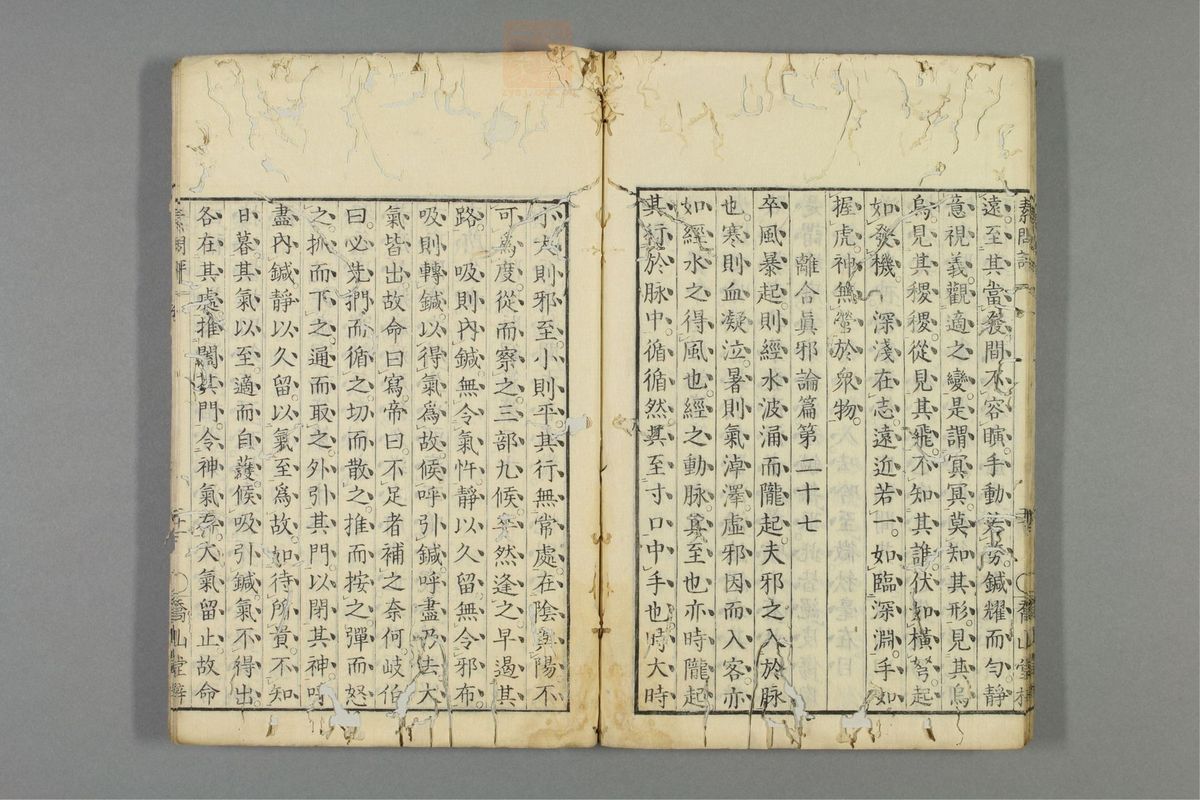 遠至其當發間不容瞚手動若務鍼耀而勻靜
意視義觀適之變是謂冥冥莫知其形見其烏
烏見其稷稷從見其飛不知其誰伏如橫弩起
如發機深淺在志遠近若一如臨深淵手如
握虎神無營於衆物
離合眞邪論篇第二十七
卒風暴起則經水波涌而隴起夫邪之入於脉
也寒則血凝泣暑則氣淖澤虛邪因而入客亦
如經水之得風也經之動脉其至也亦時隴起
其行於脉中循循然其至寸口中手也時大時
小大則邪至小則平其行無常處在陰與陽不
可爲度從而察之三部九候卒然逢之早遏其
路吸則內鍼無令氣忤靜以久留無令邪布
吸則轉鍼以得氣爲故候呼引鍼呼盡乃去大
氣皆出故命曰寫帝曰不足者補之奈何岐伯
曰必先捫而循之切而散之推而按之彈而怒
之抓而下之通而取之外引其門以閉其神呼
盡內鍼靜以久留以氣至爲故如待所貴不知
日暮其氣以至適而自護候吸引鍼氣不得出
各在其處推闔其門令神氣存大氣留止故命